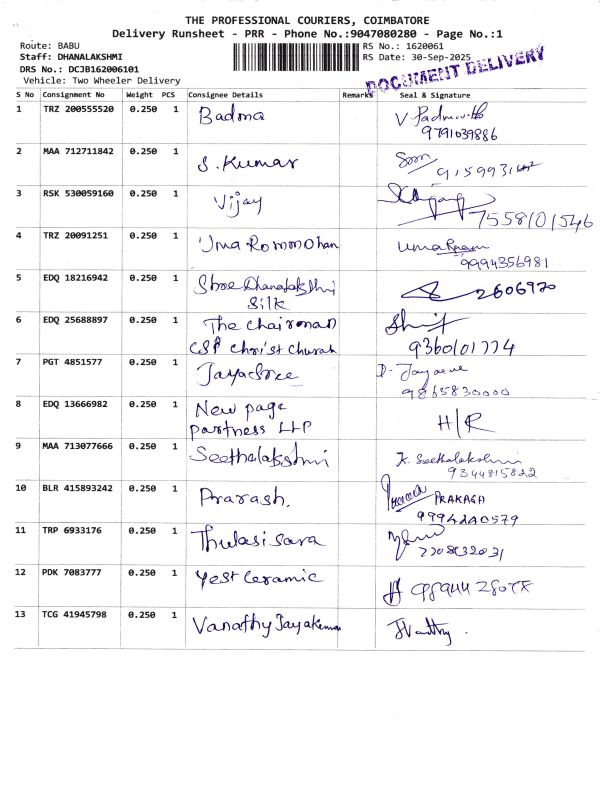 THE PROFESSIONAL COURIERS, COIMBATORE
Delivery Runsheet - PRR - Phone No.:9047080280 - Page No.:1
Route: BABU RS No.: 1620061
Staff: DHANALAKSHMI RS Date: 30-Sep-2025
DRS No.: DCJB162006101
Vehicle: Two Wheeler Delivery
DOCUMENT DELIVERY
S No Consignment No Weight PCS Consignee Details Remarks Seal & Signature
1 TRZ 200555520 0.250 1 Badma
9791039886
2 MAA 712711842 0.250 1 S. Kumar
3 RSK 530059160 0.250 1 Vijay
7558101546
4 TRZ 20091251 0.250 1 Uma Rommohan
9994356981
5 EDQ 18216942 0.250 1 Shree Dhanalakshmi 2606970
Silk
6 EDQ 25688897 0.250 1 The chairman
CSI christ church 9360101774
7 PGT 4851577 0.250 1 Jayashree
9865830000
8 EDQ 13666982 0.250 1 New page H/R
partness LLP
9 MAA 713077666 0.250 1 Seethalakshmi K. Seethalakshmi
9344815822
10 BLR 415893242 0.250 1 Prarash. PRAKASH
9994240579
11 TRP 6933176 0.250 1 Thulasi sara
7708632031
12 PDK 7083777 0.250 1 Yest Ceramic
13 TCG 41945798 0.250 1 Vanathy Jayakumar